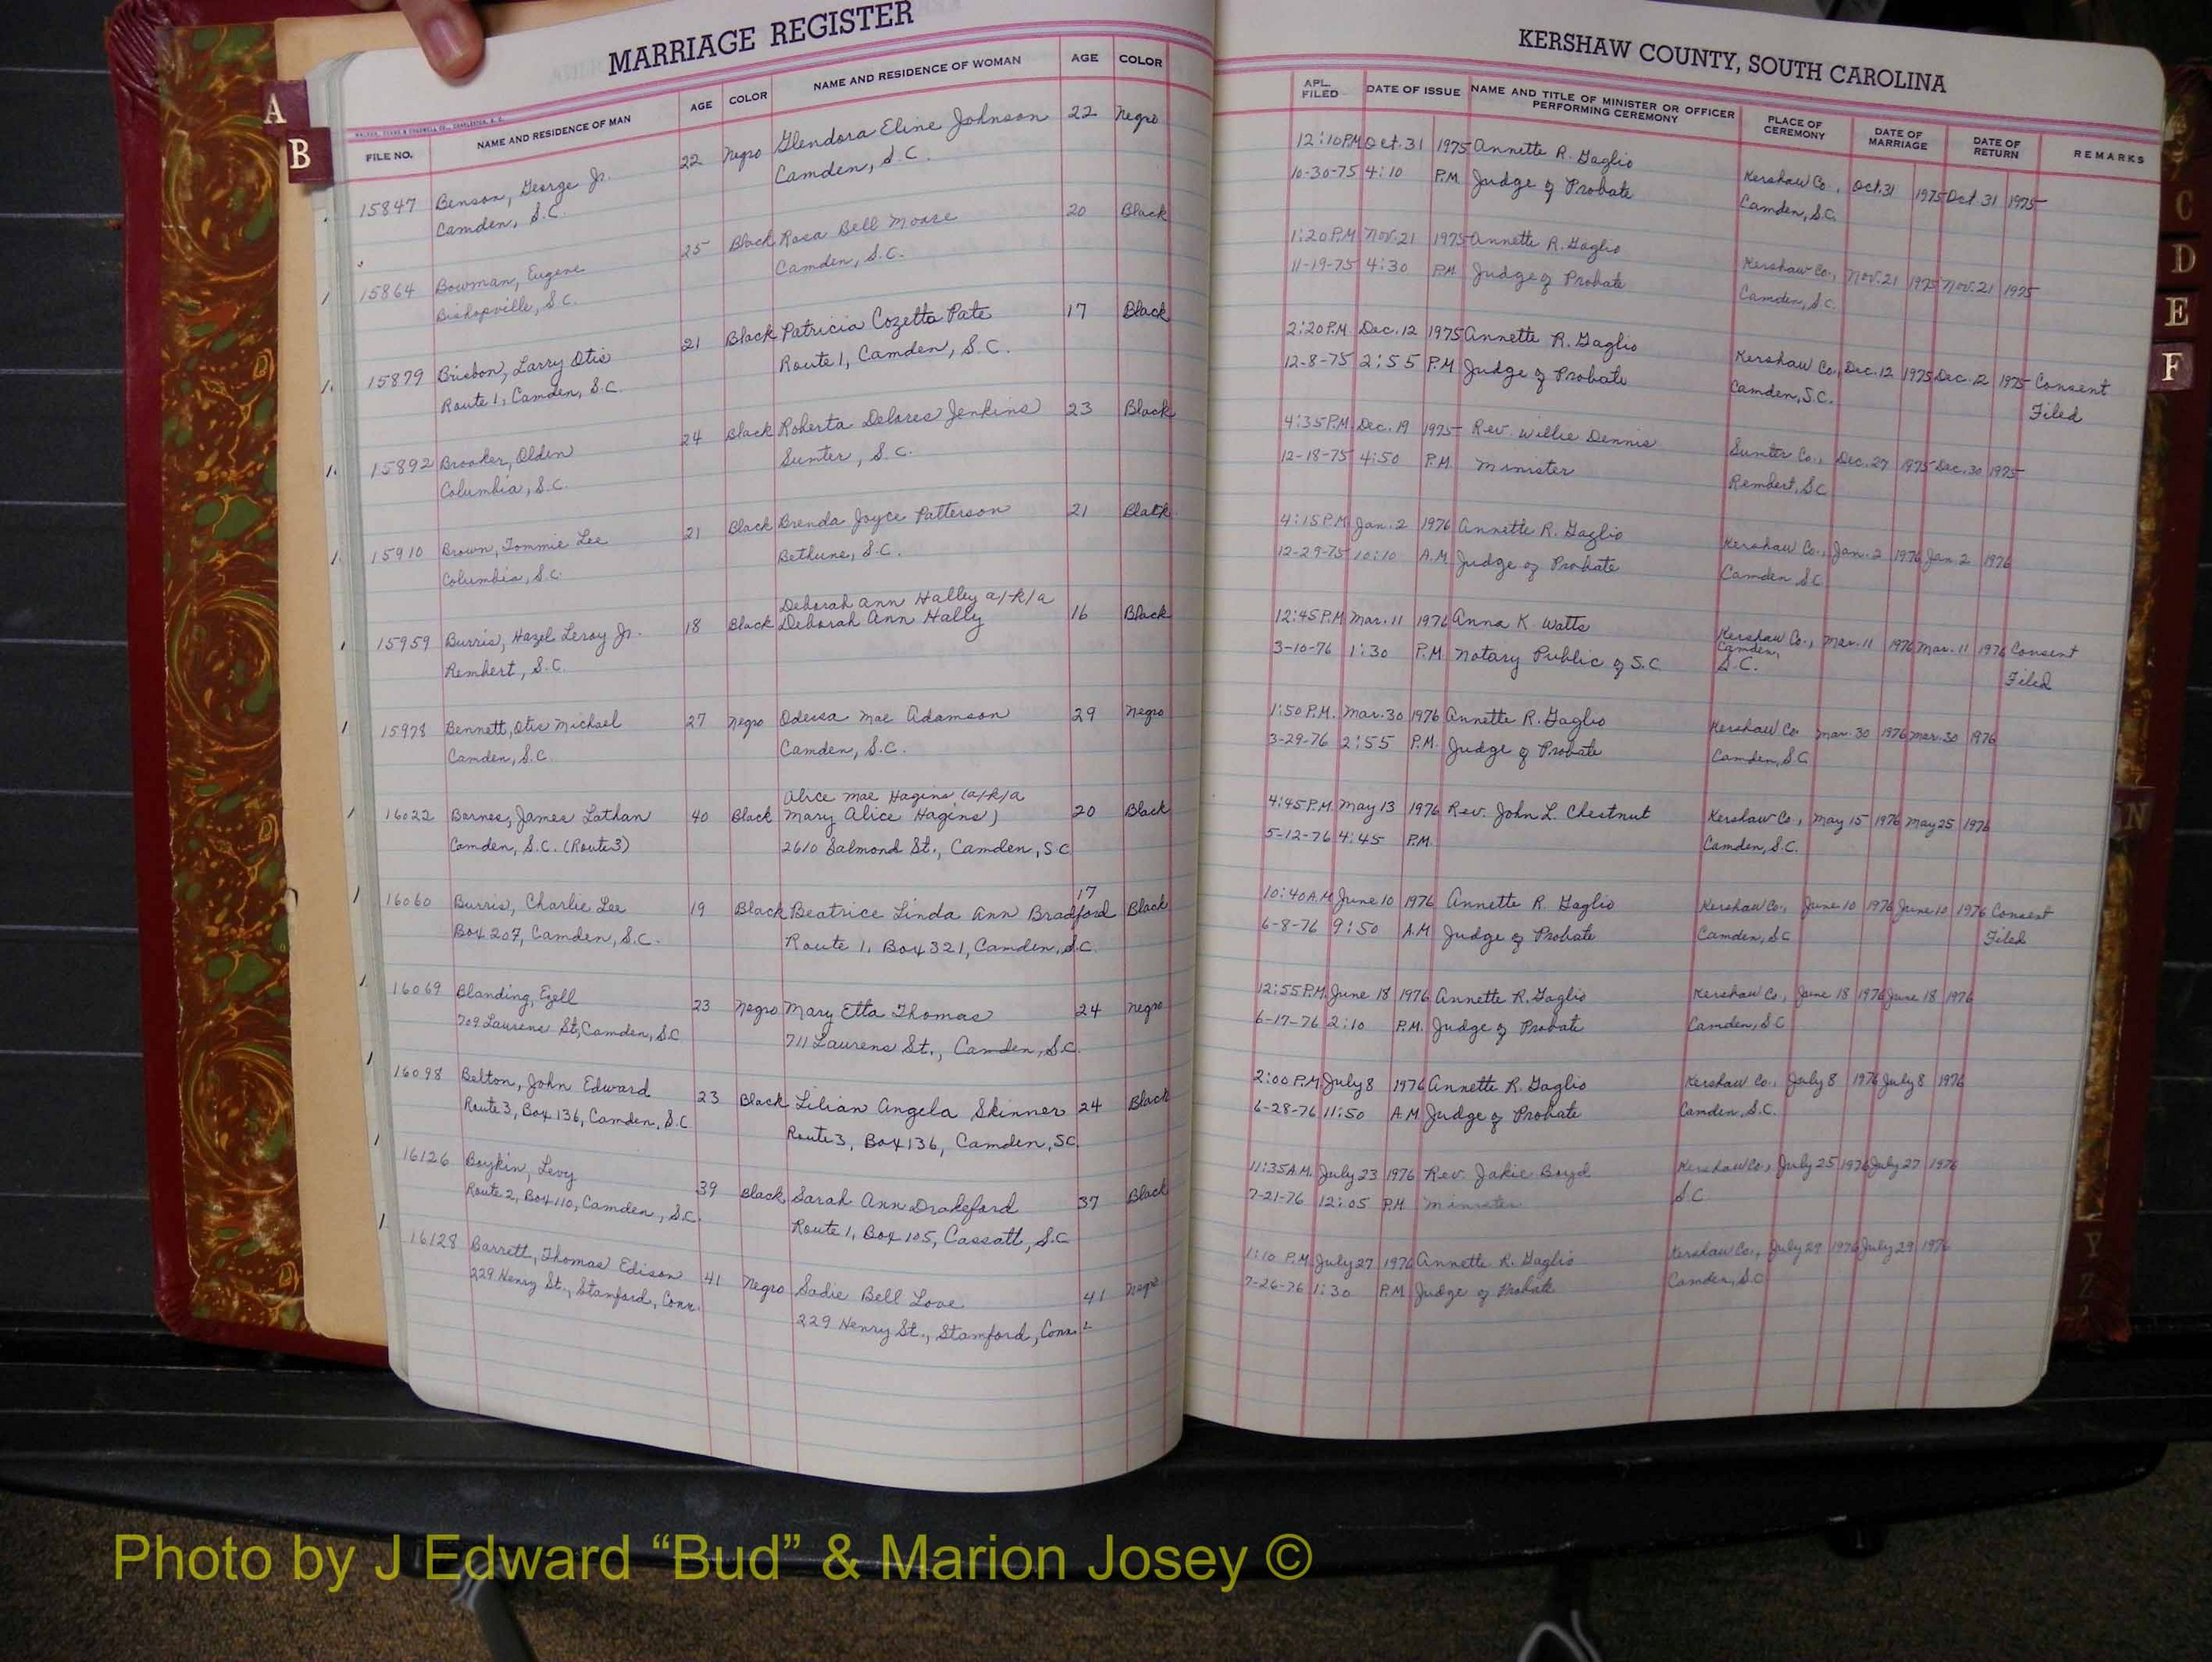 MARRIAGE REGISTER
WALKER, EVANS & COGSWELL CO., CHARLESTON, S. C.
FILE NO. NAME AND RESIDENCE OF MAN AGE COLOR NAME AND RESIDENCE OF WOMAN AGE COLOR
A
B
15847 Benson, George Jr. 22 Negro Glendora Eline Johnson 22 Negro
Camden, S.C. Camden, S.C.
15864 Bowman, Eugene 25 Black Rosa Bell Moore 20 Black
Bishopville, S.C. Camden, S.C.
15879 Brisbon, Larry Otis 21 Black Patricia Cozetta Pate 17 Black
Route 1, Camden, S.C. Route 1, Camden, S.C.
15892 Brooker, Olden 24 Black Roberta Delores Jenkins 23 Black
Columbia, S.C. Sumter, S.C.
15910 Brown, Tommie Lee 21 Black Brenda Joyce Patterson 21 Black
Columbia, S.C. Bethune, S.C.
Deborah Ann Halley a/k/a
15959 Burris, Hazel Leroy Jr. 18 Black Deborah Ann Hally 16 Black
Rembert, S.C.
15978 Bennett, Otis Michael 27 Negro Odessa Mae Adamson 29 Negro
Camden, S.C. Camden, S.C.
Alice Mae Hagins (a/k/a
16022 Barnes, James Lathan 40 Black Mary Alice Hagins) 20 Black
Camden, S.C. (Route 3) 2610 Salmond St., Camden, S.C.
16060 Burris, Charlie Lee 19 Black Beatrice Linda Ann Bradford 17 Black
Box 207, Camden, S.C. Route 1, Box 321, Camden, S.C.
16069 Blanding, Ezell 23 Negro Mary Etta Thomas 24 Negro
709 Laurens St, Camden, S.C. 711 Laurens St., Camden, S.C.
16098 Belton, John Edward 23 Black Lilian Angela Skinner 24 Black
Route 3, Box 136, Camden, S.C. Route 3, Box 136, Camden, SC.
16126 Boykin, Levy 39 Black Sarah Ann Drakeford 37 Black
Route 2, Box 110, Camden, S.C. Route 1, Box 105, Cassatt, S.C.
16128 Barrett, Thomas Edison 41 Negro Sadie Bell Love 41 Negro
229 Henry St., Stamford, Conn. 229 Henry St., Stamford, Conn.
KERSHAW COUNTY, SOUTH CAROLINA
APL. FILED DATE OF ISSUE NAME AND TITLE OF MINISTER OR OFFICER PERFORMING CEREMONY PLACE OF CEREMONY DATE OF MARRIAGE DATE OF RETURN REMARKS
12:10 P.M. Oct. 31 1975 Annette R. Gaglio Kershaw Co., Oct. 31 1975 Oct. 31 1975
10-30-75 4:10 P.M. Judge of Probate Camden, S.C.
1:20 P.M. Nov. 21 1975 Annette R. Gaglio Kershaw Co., Nov. 21 1975 Nov. 21 1975
11-19-75 4:30 P.M. Judge of Probate Camden, S.C.
2:20 P.M. Dec. 12 1975 Annette R. Gaglio Kershaw Co., Dec. 12 1975 Dec. 12 1975 Consent
12-8-75 2:55 P.M. Judge of Probate Camden, S.C. Filed
4:35 P.M. Dec. 19 1975 Rev. Willie Dennis Sumter Co., Dec. 27 1975 Dec. 30 1975
12-18-75 4:50 P.M. Minister Rembert, S.C.
4:15 P.M. Jan. 2 1976 Annette R. Gaglio Kershaw Co., Jan. 2 1976 Jan. 2 1976
12-29-75 10:10 A.M. Judge of Probate Camden S.C.
12:45 P.M. Mar. 11 1976 Anna K. Watts Kershaw Co., Mar. 11 1976 Mar. 11 1976 Consent
Camden,
3-10-76 1:30 P.M. Notary Public of S.C. S.C. Filed
1:50 P.M. Mar. 30 1976 Annette R. Gaglio Kershaw Co. Mar. 30 1976 Mar. 30 1976
3-29-76 2:55 P.M. Judge of Probate Camden, S.C.
4:45 P.M. May 13 1976 Rev. John L. Chestnut Kershaw Co., May 15 1976 May 25 1976
5-12-76 4:45 P.M. Camden, S.C.
10:40 A.M. June 10 1976 Annette R. Gaglio Kershaw Co., June 10 1976 June 10 1976 Consent
6-8-76 9:50 A.M. Judge of Probate Camden, S.C. Filed
12:55 P.M. June 18 1976 Annette R. Gaglio Kershaw Co., June 18 1976 June 18 1976
6-17-76 2:10 P.M. Judge of Probate Camden, S.C.
2:00 P.M. July 8 1976 Annette R. Gaglio Kershaw Co., July 8 1976 July 8 1976
6-28-76 11:50 A.M. Judge of Probate Camden, S.C.
11:35 A.M. July 23 1976 Rev. Jakie Boyd Kershaw Co., July 25 1976 July 27 1976
7-21-76 12:05 P.M. Minister S.C.
1:10 P.M. July 27 1976 Annette R. Gaglio Kershaw Co., July 29 1976 July 29 1976
7-26-76 1:30 P.M. Judge of Probate Camden, S.C.
C
D
E
F
N
Y
Z
Photo by J Edward “Bud” & Marion Josey ©